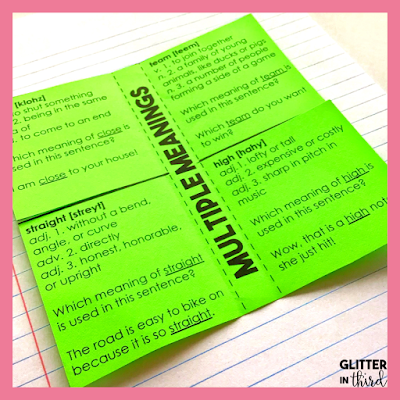 [klohz]
shut something
2. being in the same
of
to come to an end
meaning of close is
used in this sentence?
am close to your house!
team [teem]
v. 1. to join together
n. 2. a family of young
animals, like ducks or pigs
n. 3. a number of people
forming a side of a game
Which meaning of team is
used in this sentence?
Which team do you want
to win?
MULTIPLE MEANINGS
straight [streyt]
adj. 1. without a bend,
angle, or curve
adv. 2. directly
adj. 3. honest, honorable,
or upright
Which meaning of straight
is used in this sentence?
The road is easy to bike on
because it is so straight.
high [hahy]
adj. 1. lofty or tall
adj. 2. expensive or costly
adj. 3. sharp in pitch in
music
Which meaning of high is
used in this sentence?
Wow, that is a high
she just hit!
GLITTER
IN third